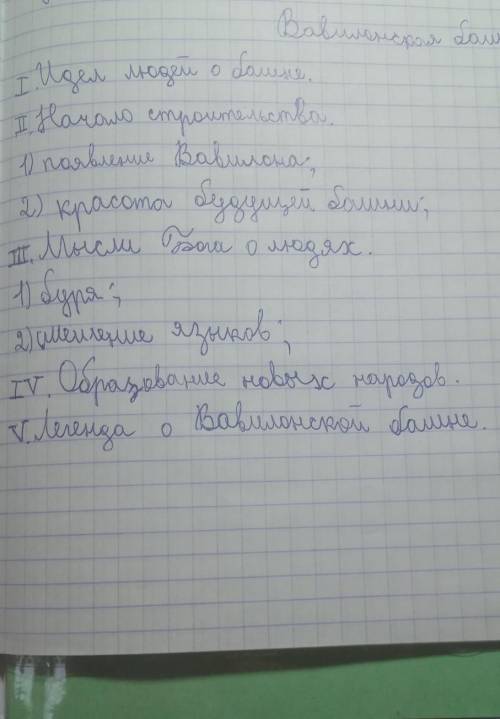 Вавилонская баш
I. Идея людей о башне.
II. Начало строительства.
1) появление Вавилона;
2) красота будущей башни;
III. Мысли Бога о людях.
1) буря;
2) смешение языков;
IV. Образование новых народов.
V. Легенда о Вавилонской башне.